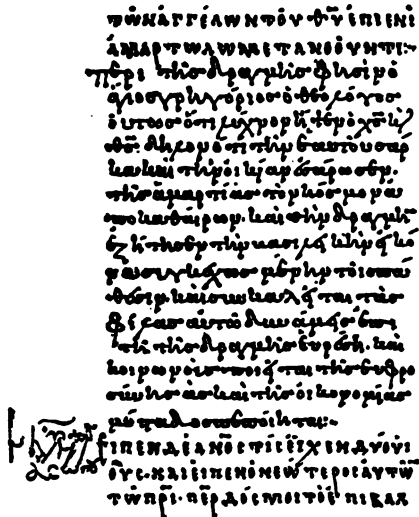 τῶν ἀγγέλων τοῦ θ̅υ̅ ἐπὶ ἑνὶ
ἁμαρτωλῶ μετανοοῦντι:~
περὶ τῆς δραγμῆς φησὶν ὁ
ἅγιος γρηγόριος ὁ θεολόγος
οὕτως ὅτι λύχνον ὁ χ̅ς̅ κ
θ̅ς̅. δηλονότι τὴν ἑαυτοῦ σάρ
κα καὶ τὴν ἐσάρωσεν.
τῆς ἁμαρτίας τὸν κόσμον ἀ
ποκαθαίρων. καὶ τὴν δραγμὴν
ἐζήτησεν τὴν βασιλικὴν εἰκό
να συγκεχωσμένην τοῖς πά
θεσιν. καὶ συγκαλεῖται τὰς
φίλας αὐτῶ δυνάμεις ἐπὶ
τῆ τῆς δραγμῆς εὑρέσει. καὶ
κοινωνοὺς ποιεῖται τῆς εὐφρο
σύνης ἃς καὶ τῆς οἰκονομίας
πεποίηται:~
εἶπεν δὲ ἄν̅ο̅ς̅ τίς εἶχεν δύο υἱ
ούς. καὶ εἶπεν ὁ νεώτερος αὐτῶ
τῶ π̅ρ̅ι̅. π̅ε̅ρ̅ δός μοι τὸ ἐπιβάλ